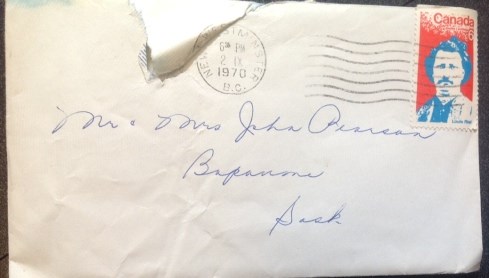 NEW WESTMINSTER
6 PM
2 IX
1970
B.C.
Canada
6
Louis Riel
Mr & Mrs John Pearson
Bapaume
Sask